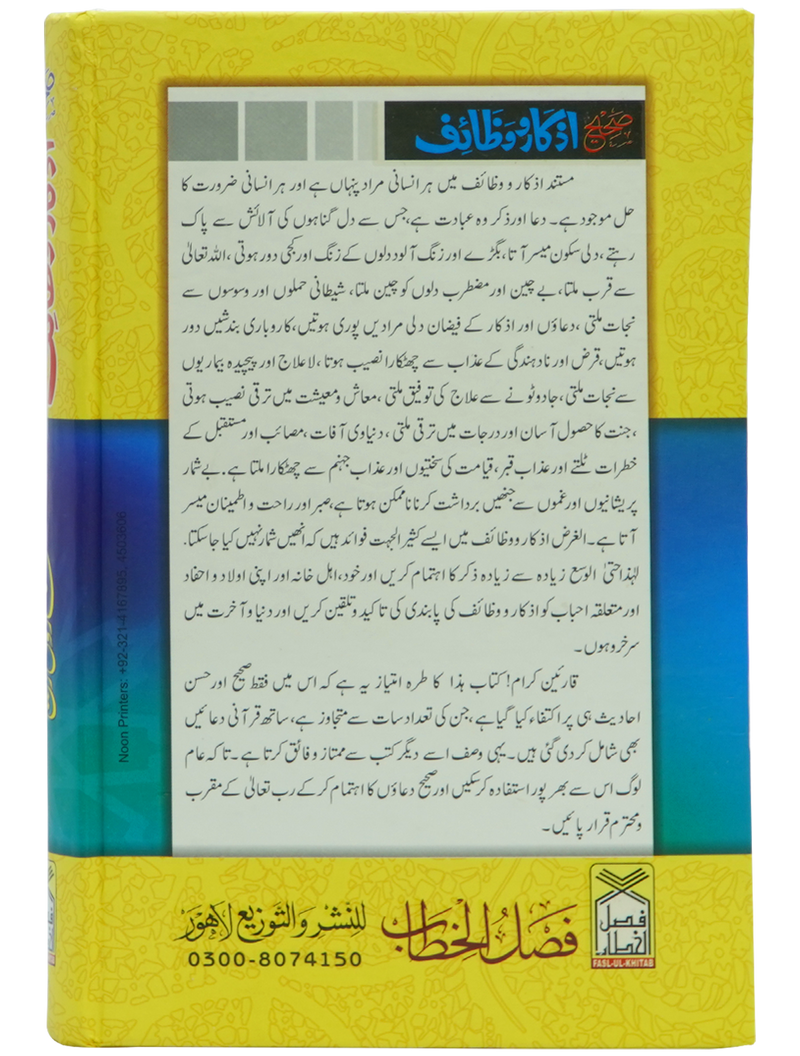 صحیح اذکار و وظائف
مستند اذکار و وظائف میں ہر انسانی مراد پنہاں ہے اور ہر انسانی ضرورت کا
حل موجود ہے۔ دعا اور ذکر وہ عبادت ہے، جس سے دل گناہوں کی آلائش سے پاک
رہتے، دلی سکون میسر آتا، بگڑے اور زنگ آلود دلوں کے زنگ اور کجی دور ہوتی، اللہ تعالیٰ
سے قرب ملتا، بے چین اور مضطرب دلوں کو چین ملتا، شیطانی حملوں اور وسوسوں سے
نجات ملتی، دعاؤں اور اذکار کے فیضان دلی مرادیں پوری ہوتیں، کاروباری بندشیں دور
ہوتیں، قرض اور نادہندگی کے عذاب سے چھٹکارا نصیب ہوتا، لاعلاج اور پیچیدہ بیماریوں
سے نجات ملتی، جادو ٹونے سے علاج کی توفیق ملتی، معاش و معیشت میں ترقی نصیب ہوتی
، جنت کا حصول آسان اور درجات میں ترقی ملتی، دنیاوی آفات، مصائب اور مستقبل کے
خطرات ٹلتے اور عذاب قبر، قیامت کی سختیوں اور عذاب جہنم سے چھٹکارا ملتا ہے. بے شمار
پریشانیوں اور غموں سے جنھیں برداشت کرنا ناممکن ہوتا ہے، صبر اور راحت و اطمینان میسر
آتا ہے۔ الغرض اذکار و وظائف میں ایسے کثیر الجہت فوائد ہیں کہ انھیں شمار نہیں کیا جا سکتا.
لہٰذا حتیٰ الوسع زیادہ سے زیادہ ذکر کا اہتمام کریں اور خود، اہل خانہ اور اپنی اولاد و احفاد
اور متعلقہ احباب کو اذکار و وظائف کی پابندی کی تاکید و تلقین کریں اور دنیا و آخرت میں
سرخرو ہوں۔
قارئین کرام! کتاب ہذا کا طرہ امتیاز یہ ہے کہ اس میں فقط صحیح اور حسن
احادیث ہی پر اکتفاء کیا گیا ہے، جن کی تعداد سات سے متجاوز ہے، ساتھ قرآنی دعائیں
بھی شامل کر دی گئی ہیں۔ یہی وصف اسے دیگر کتب سے ممتاز و فائق کرتا ہے۔ تاکہ عام
لوگ اس سے بھر پور استفادہ کر سکیں اور صحیح دعاؤں کا اہتمام کر کے رب تعالیٰ کے مقرب
و محترم قرار پائیں۔
فصل الخطاب
FASL-UL-KHITAB
فَصْلُ الْخِطَاب للنشر والتوزیع لاہور
0300-8074150
Noon Printers: +92-321-4167895, 4503606